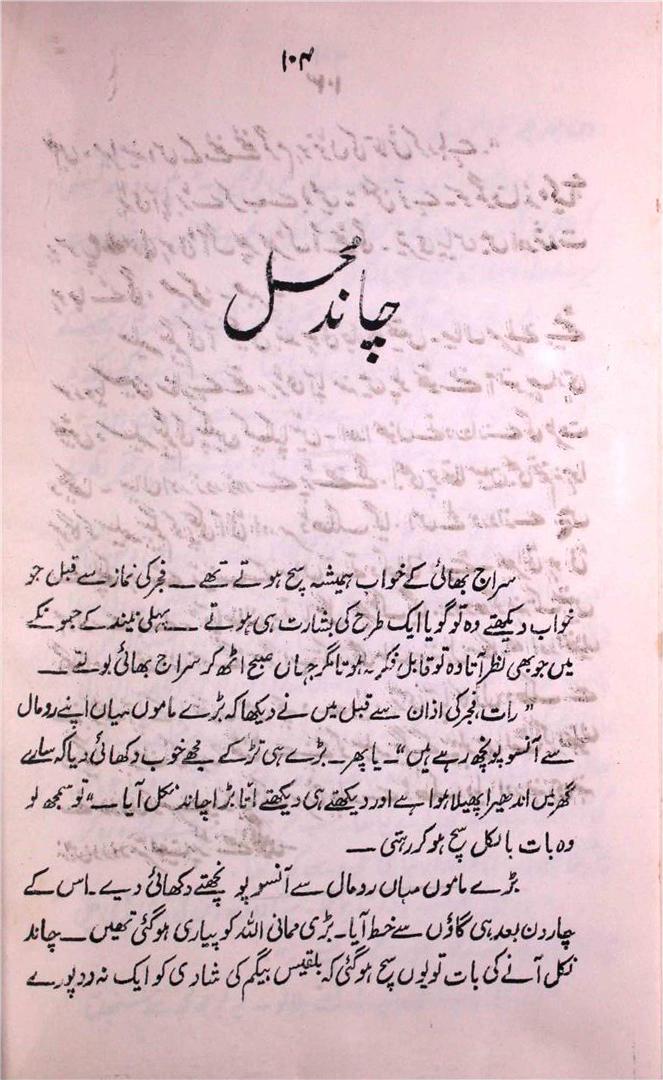 ۱۰۴
چاند محل
سراج بھائی کے خواب ہمیشہ سچ ہوتے تھے ــ فجر کی نماز سے قبل جو
خواب دیکھتے وہ تو گویا ایک طرح کی بشارت ہی ہوتے ــ پہلی نیند کے جھونکے
میں جو بھی نظر آتا وہ تو قابل فکر نہ ہوتا مگر جہاں صبح اٹھ کر سراج بھائی بولے ــ
”رات، فجر کی اذان سے قبل میں نے دیکھا کہ بڑے ماموں میاں اپنے رومال
سے آنسو پونچھ رہے ہیں“ ــ یا پھر ــ بڑے ہی تڑکے مجھے خوب دکھائی دیا کہ سارے
گھر میں اندھیرا پھیلا ہوا ہے اور دیکھتے ہی دیکھتے اتنا بڑا چاند نکل آیا ــ“ تو سمجھ لو
وہ بات بالکل سچ ہو کر رہتی ــ
بڑے ماموں میاں رومال سے آنسو پونچھتے دکھائی دیے۔ اس کے
چار دن بعد ہی گاؤں سے خط آیا۔ بڑی ممانی اللہ کو پیاری ہو گئی تھیں ــ چاند
نکل آنے کی بات تو یوں سچ ہو گئی کہ بلقیس بیگم کی شادی کو ایک نہ دو پورے